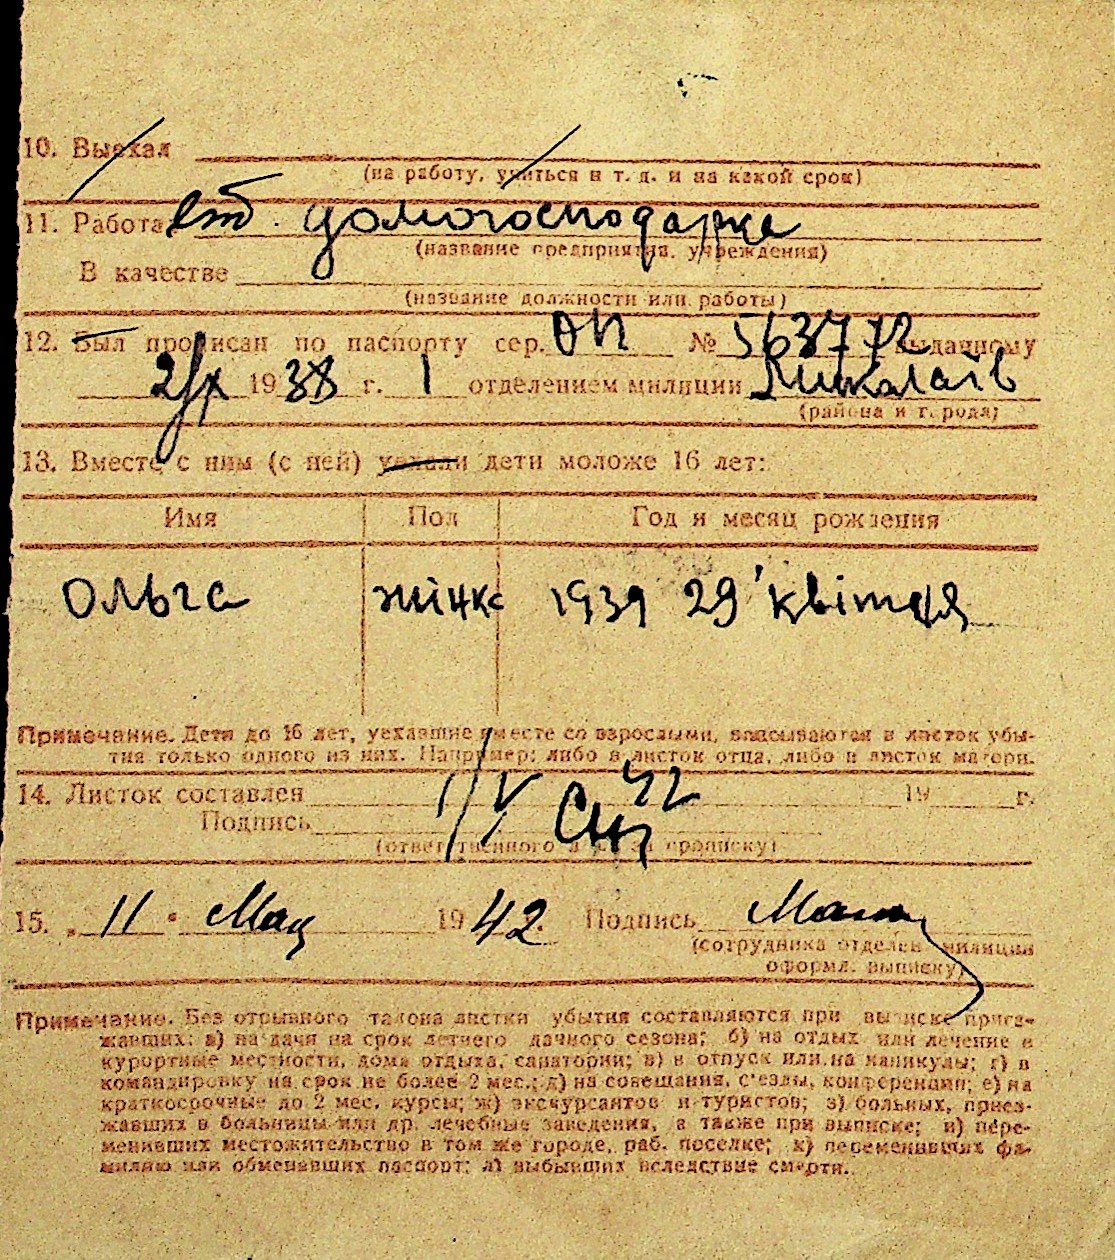 10. Выехал
(на работу, учиться и т. д. и на какой срок)
11. Работа домогосподарка
(название предприятия, учреждения)
В качестве
(название должности или работы)
12. Был прописан по паспорту сер. ОП № 563772 выданному
2/IX 1938 г. 1 отделением милиции Миколаїв
(района и города)
13. Вместе с ним (с ней) уехали дети моложе 16 лет:
Имя Пол Год и месяц рождения
Ольга жінка 1939 29 квітня
Примечание. Дети до 16 лет, уехавшие вместе со взрослыми, вписываются в листок убы-
тия только одного из них. Например: либо в листок отца, либо в листок матери.
14. Листок составлен 1/V 42 19 г.
Подпись
(ответственного за прописку)
15. „11" Мая 1942 г. Подпись
(сотрудника отделен. милиции
оформл. выписку)
Примечание. Без отрывного талона листки убытия составляются при выписке приез-
жавших: а) на дачи на срок летнего дачного сезона; б) на отдых или лечение в
курортные местности, дома отдыха, санатории; в) в отпуск или на каникулы; г) в
командировку на срок не более 2 мес.; д) на совещания, с'езды, конференции; е) на
краткосрочные до 2 мес. курсы; ж) экскурсантов и туристов; з) больных, приез-
жавших в больницы или др. лечебные заведения, а также при выписке; и) пере-
менивших местожительство в том же городе, раб. поселке; к) переменивших фа-
милию или обменявших паспорт; л) выбывших вследствие смерти.